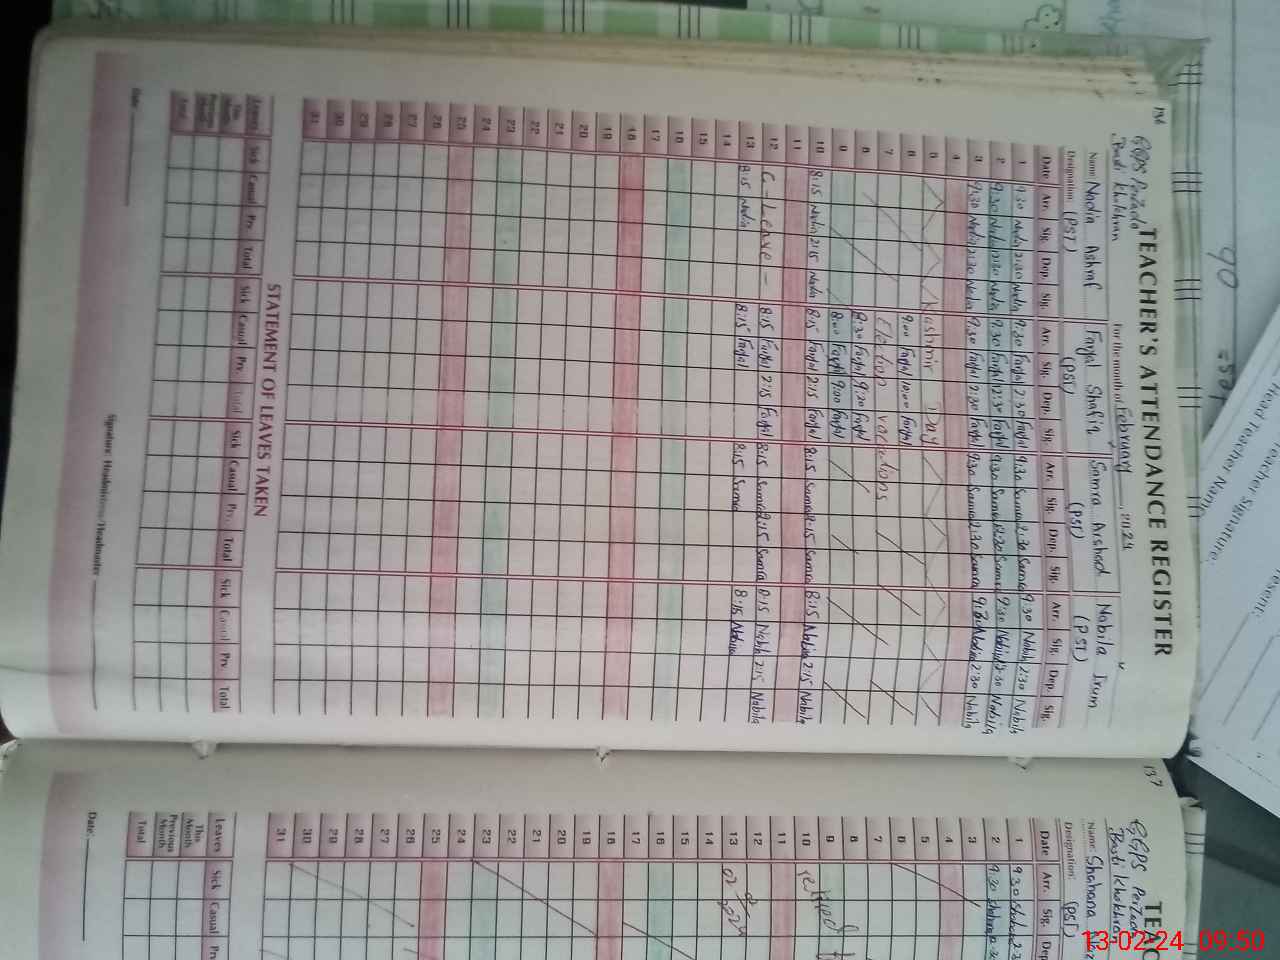 136
TEACHER'S ATTENDANCE REGISTER
GGPS Perzada
Basti Khokhran
For the month of February, 2024
Name: Nadia Ashraf
Designation: (PST)
Shafiq
(PST)
Samra Arshad
(PST)
Nabila Irum
(PST)
Date Arr. Sig. Dep. Sig. Arr. Sig. Dep. Sig. Arr. Sig. Dep. Sig. Arr. Sig. Dep. Sig.
1 9:30 Nadia 2:30 Nadia 9:30 2:30 9:30 Samra 2:30 Samra 9:30 Nabila 2:30 Nabila
2 9:30 Nadia 2:30 Nadia 9:30 2:30 9:30 Samra 2:30 Samra 9:30 Nabila 2:30 Nabila
3 9:30 Nadia 2:30 Nadia 9:30 2:30 9:30 Samra 2:30 Samra 9:30 Nabila 2:30 Nabila
4
5 Kashmir Day
6 9:00 10:00
7 Election vacations
8 8:30 9:20
9 8:00 9:00
10 8:15 Nadia 2:15 Nadia 8:15 2:15 8:15 Samra 2:15 Samra 8:15 Nabila 2:15 Nabila
11
12 C-Leave- 8:15 2:15 8:15 Samra 2:15 Samra 8:15 Nabila 2:15 Nabila
13 8:15 Nadia 8:15 8:15 Samra 8:15 Nabila
14
15
16
17
18
19
20
21
22
23
24
25
26
27
28
29
30
31
STATEMENT OF LEAVES TAKEN
Leaves Sick Casual Prv. Total Sick Casual Prv. Total Sick Casual Prv. Total Sick Casual Prv. Total
This Month
Previous Month
Total
Date:
Signature: Headmistress/Headmaster
137
TEAC
GGPS Perzada
Basti Khokhran
Name: Shahana
Designation: (PST)
Date Arr. Sig. Dep
1 9:30
2 9:30
3
4
5
6
7
8
9
10
11
12
13
14
15
16
17
18
19
20
21
22
23
24
25
26
27
28
29
30
31
Leaves Sick Casual Pr
This Month
Previous Month
Total
Date:
90
Head Teacher Name
Teacher Signature:
esent:
13-02-24 09:50